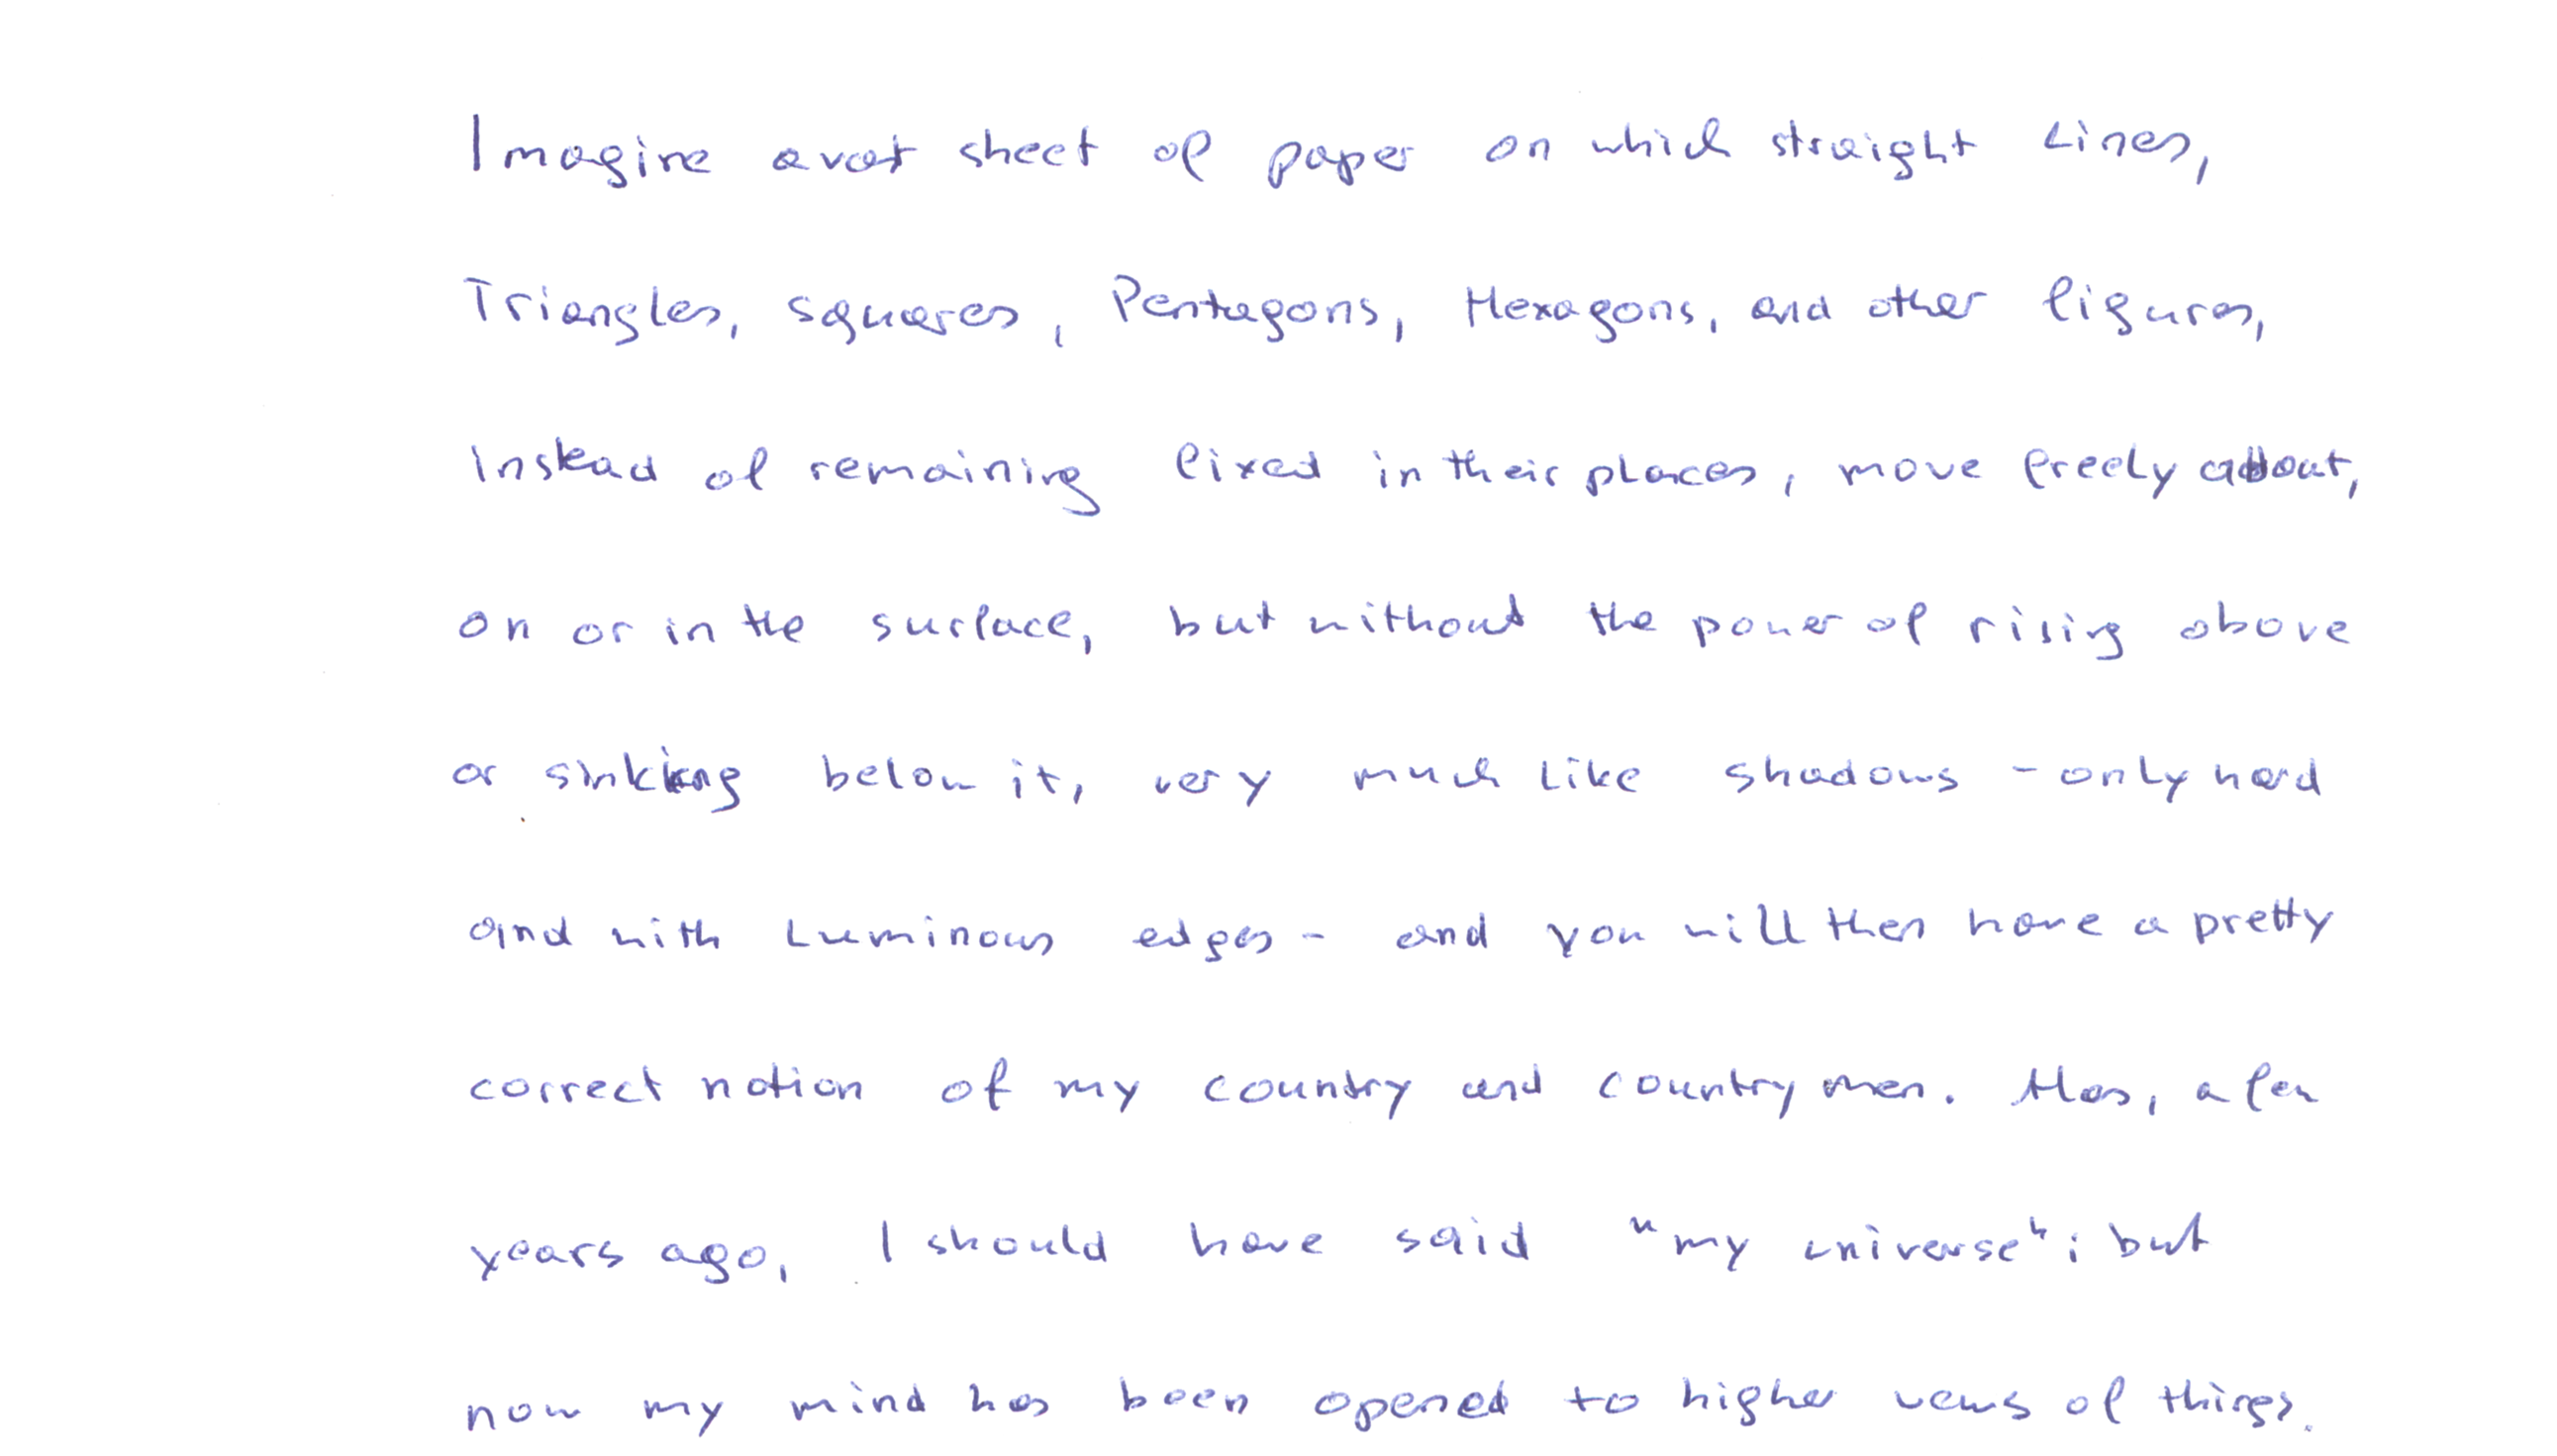 Imagine a vast sheet of paper on which straight Lines,
Triangles, Squares, Pentagons, Hexagons, and other figures,
instead of remaining fixed in their places, move freely about,
on or in the surface, but without the power of rising above
or sinking below it, very much like shadows - only hard
and with luminous edges - and you will then have a pretty
correct notion of my country and countrymen. Alas, a few
years ago, I should have said "my universe"; but
now my mind has been opened to higher views of things.